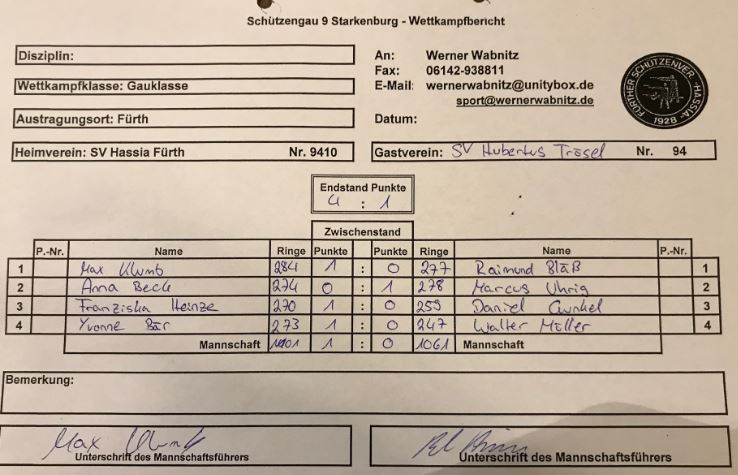 Schützengau 9 Starkenburg - Wettkampfbericht
Disziplin:
An: Werner Wabnitz
Fax: 06142-938811
Wettkampfklasse: Gauklasse
E-Mail: wernerwabnitz@unitybox.de
sport@wernerwabnitz.de
Austragungsort: Fürth
Datum:
FÜRTHER SCHÜTZENVER. HASSIA 1928
Heimverein: SV Hassia Fürth Nr. 9410
Gastverein: SV Hubertus Trösel Nr. 94
Endstand Punkte
4 : 1
Zwischenstand
P.-Nr. Name Ringe Punkte Punkte Ringe Name P.-Nr.
1 Max Klumb 284 1 : 0 277 Raimund Bläß 1
2 Anna Beck 274 0 : 1 278 Marcus Uhrig 2
3 Franziska Heinze 270 1 : 0 259 Daniel 3
4 Yvonne Bär 273 1 : 0 247 Walter Müller 4
Mannschaft 1101 1 : 0 1061 Mannschaft
Bemerkung:
Max Klumb
Unterschrift des Mannschaftsführers
Unterschrift des Mannschaftsführers